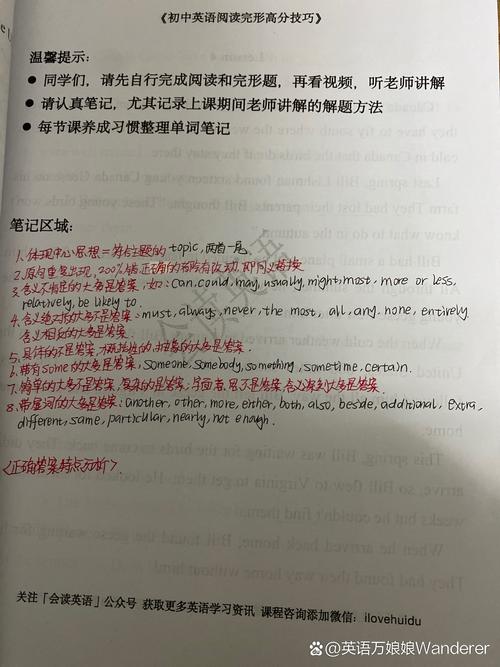 《初中英语阅读完形高分技巧》
温馨提示：
● 同学们，请先自行完成阅读和完形题，再看视频，听老师讲解
● 请认真笔记，尤其记录上课期间老师讲解的解题方法
● 每节课养成习惯整理单词笔记
笔记区域：
1. 体现中心思想=符合主题的 topic, 两首一尾.
2. 原句重复出现, 200%错, 正确的都会有改动, 即同义替换
3. 含义不肯定的大多是答案, 如: can, could, may, usually, might, most, more or less,
relatively, be likely to.
4. 含义绝对的大多不是答案: must, always, never, the most, all, any, none, entirely
含义相反的大多是答案.
5. 具体的不是答案, 概括性的, 抽象的大多是答案.
6. 带有some的大多是答案, someone, somebody, something, sometime, certain.
7. 简单的大多不是答案, 复杂的是答案,
8. 带量词的大多是答案: another, other, more, either, both, also, beside, additional, extra,
different, same, particular, nearly, not enough.
<正确答案特点分析>
会读英语
关注「会读英语」公众号 获取更多英语学习资讯 课程咨询添加微信：ilovehuidu
知乎 @英语万娘娘Wanderer